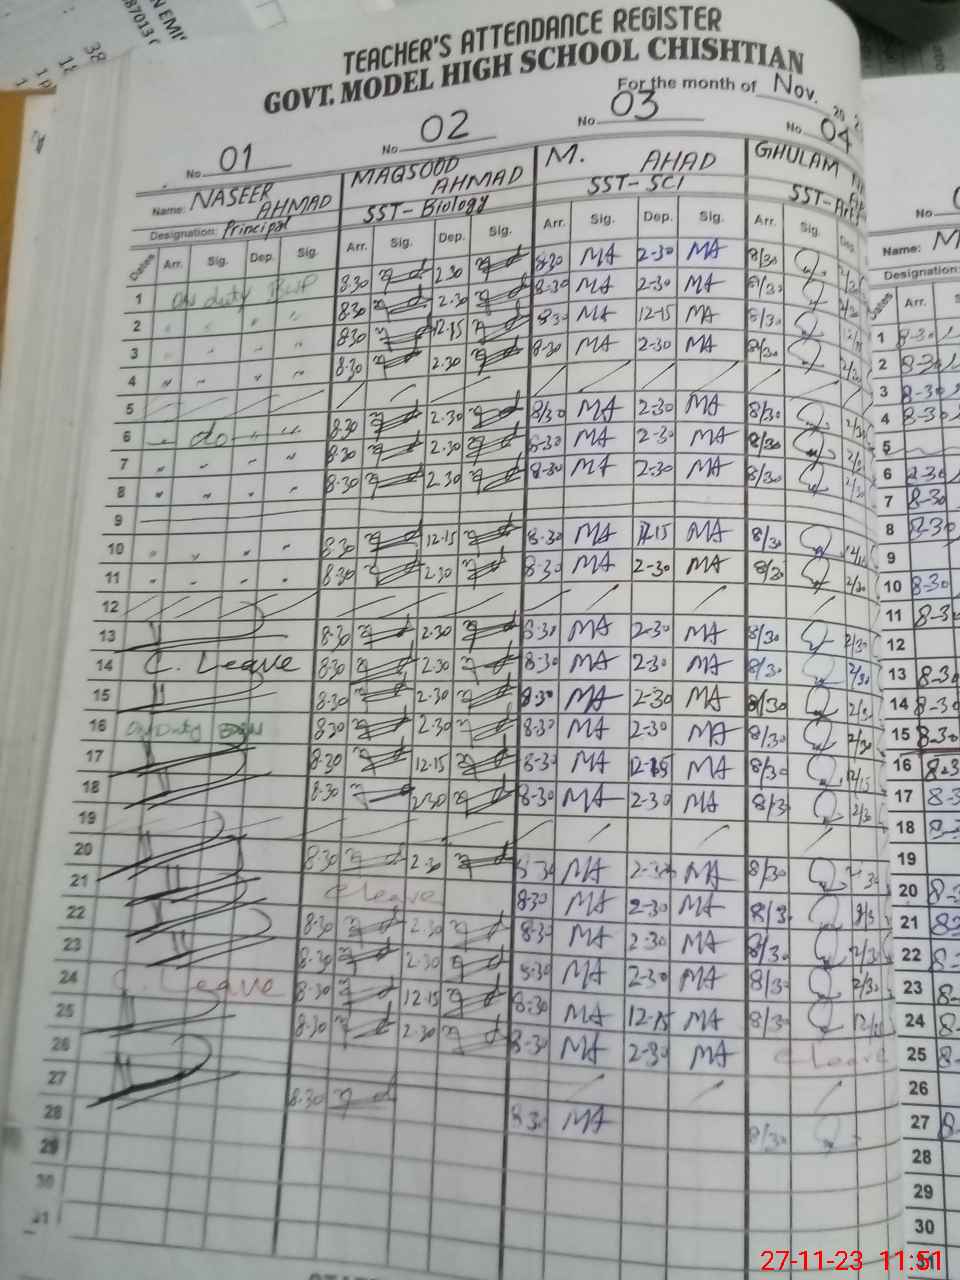 TEACHER'S ATTENDANCE REGISTER
GOVT. MODEL HIGH SCHOOL CHISHTIAN
For the month of Nov. 20
No. 01 No. 02 No. 03 No. 04
Name: NASEER AHMAD MAQSOOD AHMAD M. AHAD GHULAM
Designation: Principal SST-Biology SST-SCI SST-Art
Dates Arr. Sig. Dep. Sig. Arr. Sig. Dep. Sig. Arr. Sig. Dep. Sig. Arr. Sig. Dep.
1 On duty 8.30 2.30 8-30 MA 2-30 MA 8/30 2/30
2 " " " " 8.30 2.30 8-30 MA 2-30 MA 8/30 2/30
3 " " " " 8.30 12.15 8-30 MA 12-15 MA 8/30
4 " " " " 8.30 2.30 8-30 MA 2-30 MA 8/30 2/30
5
6 " do " " 8.30 2.30 8/30 MA 2-30 MA 8/30 2/30
7 " " " " 8.30 2.30 8-30 MA 2-30 MA 8/30 2/30
8 " " " " 8.30 2.30 8-30 MA 2-30 MA 8/30 2/30
9
10 " " " " 8.30 12.15 8-30 MA 12-15 MA 8/30
11 " " " " 8.30 2.30 8-30 MA 2-30 MA 8/30 2/30
12
13 8.30 2.30 8-30 MA 2-30 MA 8/30 2/30
14 C. Leave 8.30 2.30 8-30 MA 2-30 MA 8/30 2/30
15 8.30 2.30 8-30 MA 2-30 MA 8/30 2/30
16 On Duty 8.30 2.30 8-30 MA 2-30 MA 8/30 2/30
17 8.30 12.15 8-30 MA 12-15 MA 8/30 12/15
18 8.30 2.30 8-30 MA 2-30 MA 8/30 2/30
19
20 8.30 2.30 8-30 MA 2-30 MA 8/30 2/30
21 C leave 8-30 MA 2-30 MA 8/30
22 8.30 2.30 8-30 MA 2-30 MA 8/30 2/30
23 8.30 2.30 8-30 MA 2-30 MA 8/30 2/30
24 C. Leave 8.30 12.15 8-30 MA 12-15 MA 8/30
25 8.30 2.30 8-30 MA 2-30 MA C Leave
26
27 8.30 8-30 MA 8/30
28
29
30
31
No.
Name: M
Designation:
Dates Arr.
1 8-30
2 8-30
3 8-30
4 8-30
5
6 8-30
7 8-30
8 8-30
9
10 8-30
11 8-30
12
13 8-30
14 8-30
15 8-30
16 8-3
17 8-3
18
19
20 8-3
21
22 8-
23 8-
24 8-
25 8-
26
27 8-
28
29
30
31
27-11-23 11:51